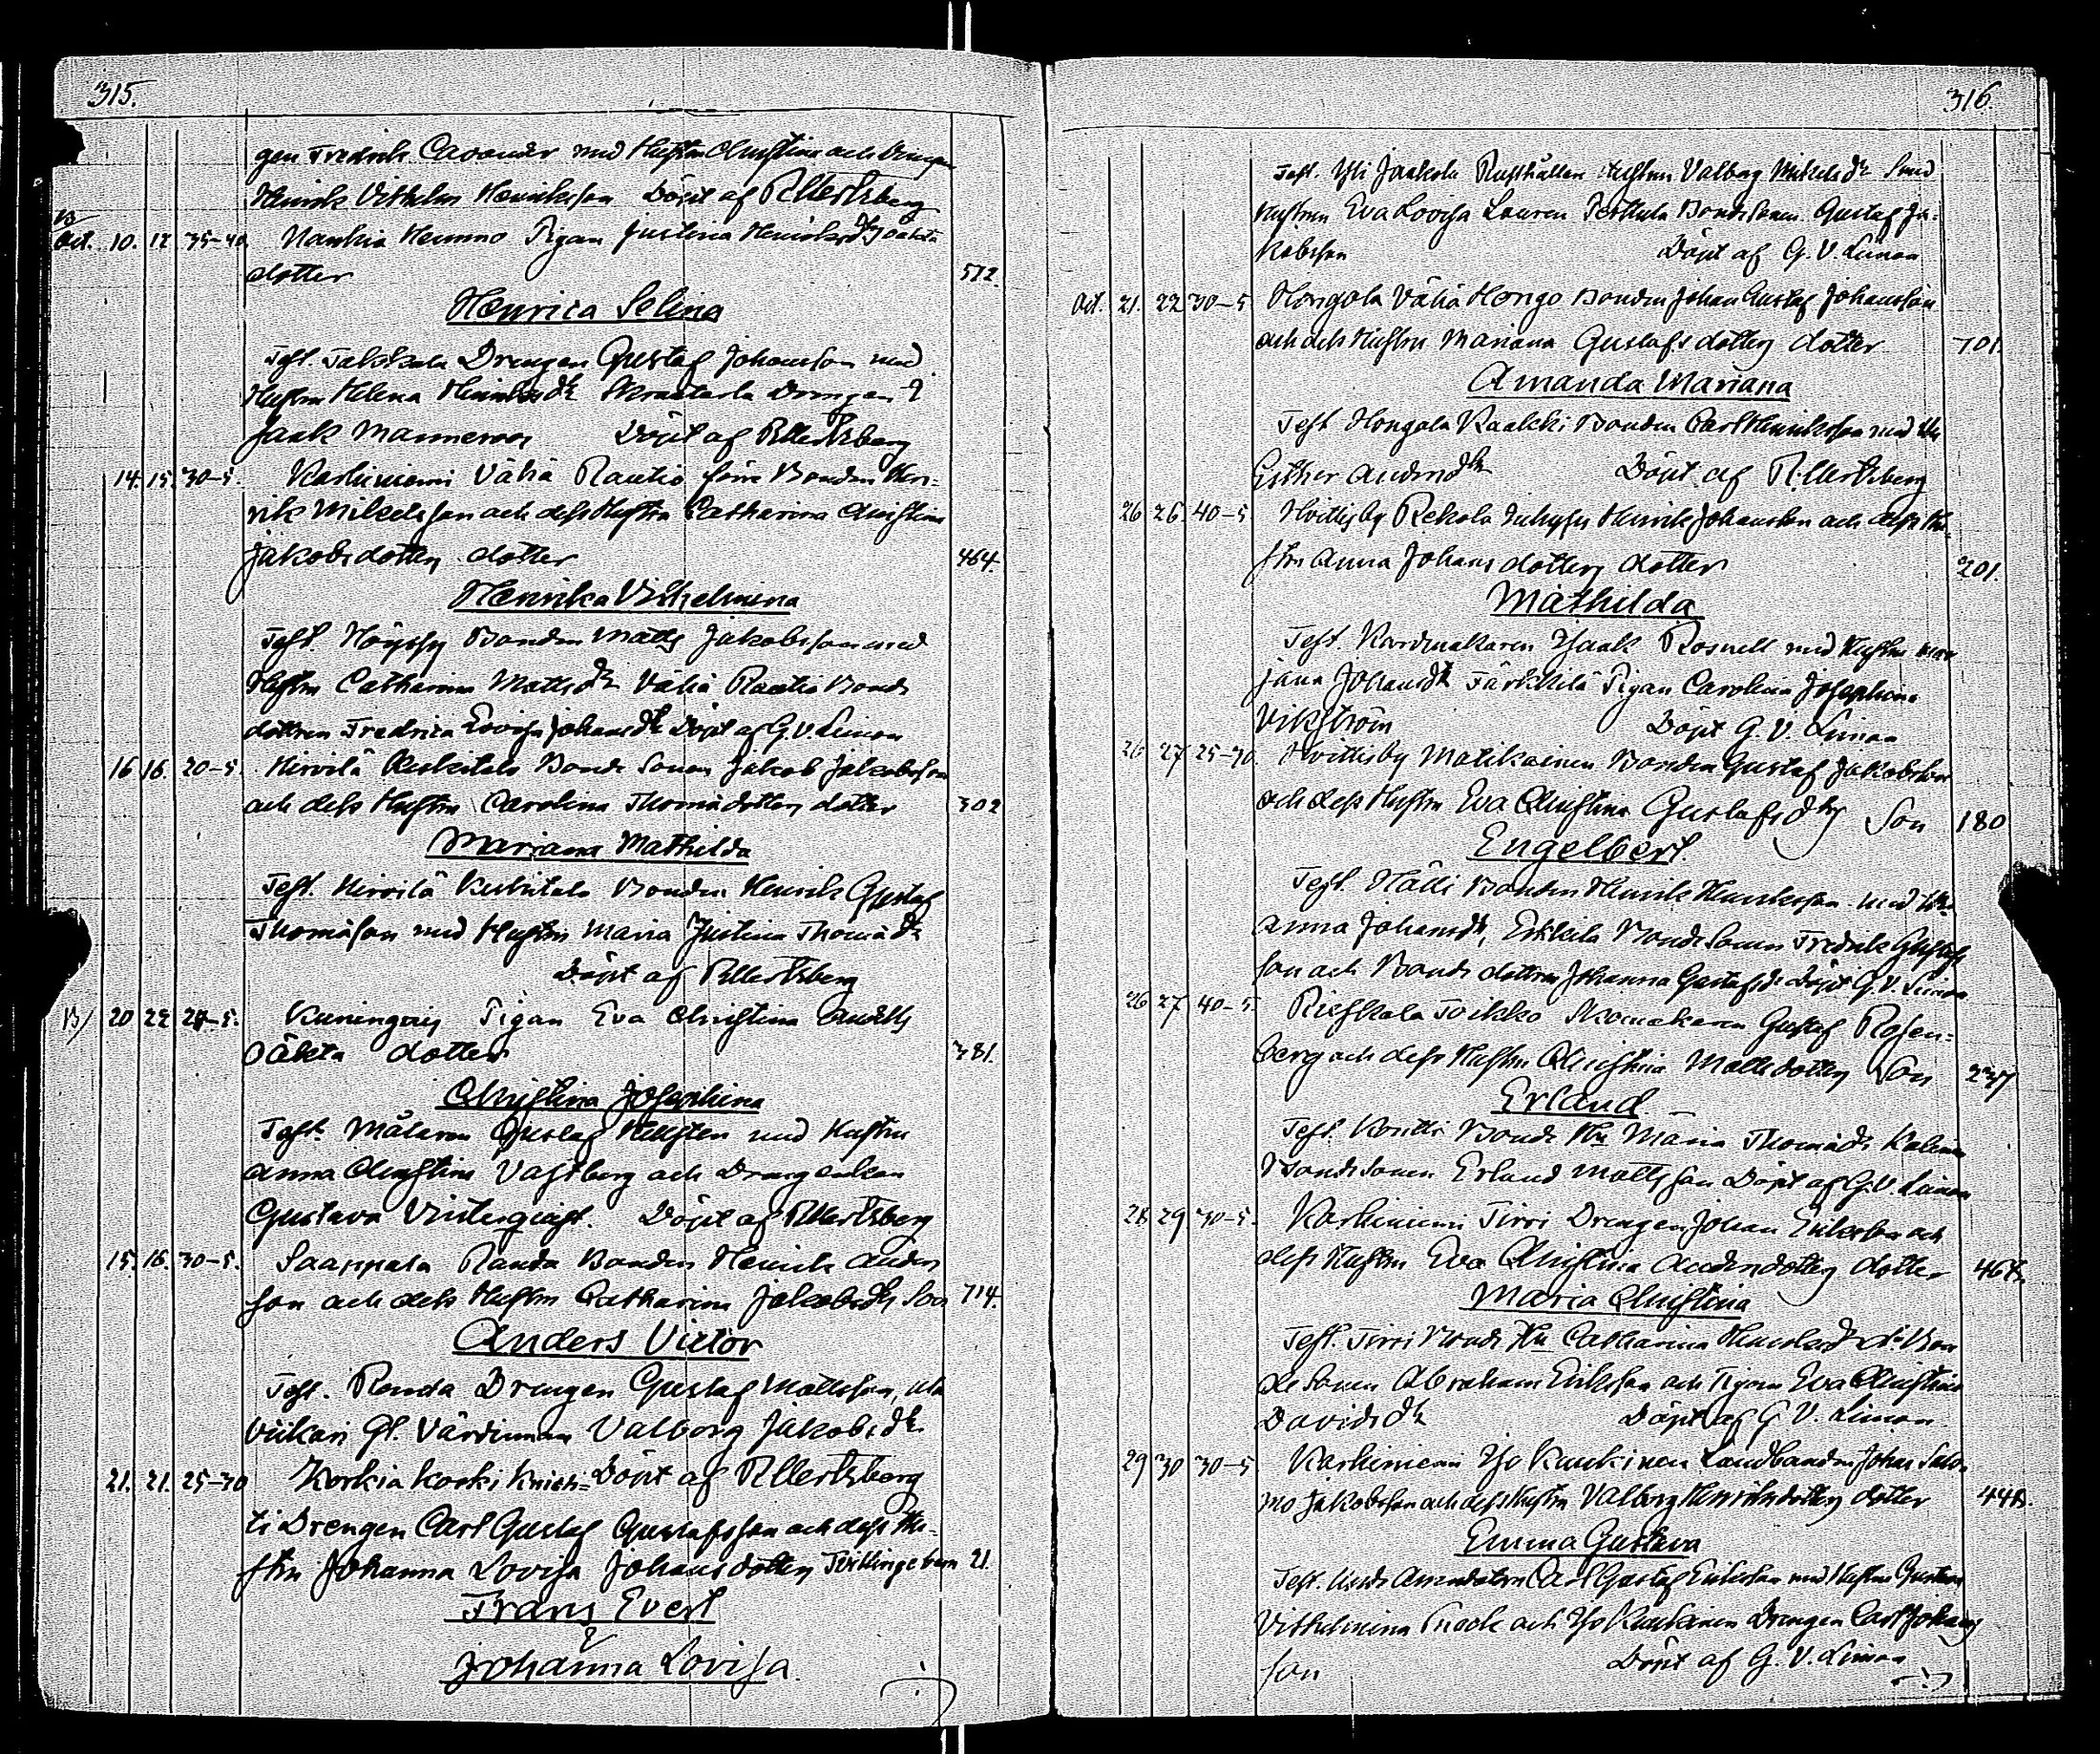 315.
gen Fredrik Cavander med Hustrun Christina och Drengen
Henrik Vilhelm Henriksson Döpt af R Mertsberg
B/
Oct. 10. 12 35-40 Nanhia Hemmo Pigan Justina Henriksdr Oäkta
dotter 512.
Henrica Selina
Test. Drengen Gustaf Johansson med
Hustrun Helena Henriksdr Drengen
Döpt af R Mertsberg
14. 15. 30-5. Karhiniemi Vähä Rautio förra Bonden Hen-
rik Mikelsson och dess Hustru Catharina Christina
Jakobsdotters dotter 464.
Henrika Vilhelmina
Test. Bonden Matts Jakobsson med
Hustru Catharina Mattsdr Vähä Rautio Bonde
dottren Fredrica Lovisa Johansdr Döpt af G. V. Limon
16 16. 20-5. Hirvilä Keskitalo Bonde Sonen Jakob Jakobsson
och dess Hustru Carolina Thomädotters dotter 302
Mariana Mathilda
Test. Hirvilä Keskitalo Bonden Henrik Gustaf
Thomäson med Hustru Maria Justina Thomädr
Döpt af R Mertsberg
B/ 20 22 20-5. Kuningais Pigan Eva Christina
Oäkta dotter 381.
Christina Josephina
Test. Målaren Gustaf med Hustru
Anna Christina Vastberg och Drengenkan
Gustava Döpt af R Mertsberg
15. 16. 30-5. Saappala Randa Bonden Henrik Anders
son och dess Hustru Catharina Jakobsdrs Son 714.
Anders Victor
Test. Ronda Drengen Gustaf Mattsson,
Viikari Gl. Värdinnan Valborg Jakobsdr
21. 21. 25-30 Korkiakoski Knich= Döpt af R Mertsberg
ti Drengen Carl Gustaf Gustafsson och dess Hu-
stru Johanna Lovisa Johansdotters Tvillingebarn 21.
Frans Evert
&
Johanna Lovisa
316.
Test. Yli Jaakola Rusthållare Hustrun Valborg Mikelsdr Smed
Hustrun Eva Lovisa Lauren Perttula Bondesonen Gustaf Ja-
kobsson Döpt af G. V. Limon
Oct. 21. 22 30-5 Hongola Vähä Hongo Bonden Johan Gustaf Johansson
och dess Hustru Mariana Gustafsdotters dotter 701.
Amanda Mariana
Test Hongola Kaakki Bonden Carl Henriksson med Hu
Esther Andersdr Döpt af R Mertsberg
26 26 40-5 Hvittisby Rekola Inhyses Henrik Johansson och dess Hu-
stru Anna Johansdotters dotter 201.
Mathilda
Test. Kardmakaren Isaak Rosnell med Hustru Mar
jana Johansdr Färkkilä Pigan Carolina Josephina
Vikström Döpt G. V. Limon
26 27 25-30. Hvittisby Matikainen Bonden Gustaf Jakobsson
och dess Hustru Eva Christina Gustafsdrs Son 180
Engelbert.
Test. Hälli Bonden Henrik Henriksson med Hu
Anna Johansdr, Erkkilä Bondesonen Fredrik Gustafs
son och Bonde dottren Johanna Gustafsdr Döpt G. V. Limon
26 27 40-5. Rieskala Toikko Skomakaren Gustaf Rosen-
berg och dess Hustru Christina Mattsdotters Son 237
Erland
Test. Kontti Bonde Hu Maria Thomädr
Bondesonen Erland Mattsson Döpt af G. V. Limon
28 29 30-5. Karhiniemi Tirri Drengen Johan Eriksson och
dess Hustru Eva Christina Andersdotters dotter
Maria Christina
Test. Tirri Bonde Hu Catharina Henriksdr d:o Bon
de Sonen Abraham Eriksson och Pigan Eva Christina
Davidsdr Döpt af G V. Limon
29 30 30-5 Karhiniemi Iso Kaukinen Landbonden Johan Salo-
mo Jakobsson och dess Hustru Valborg Henriksdotters dotter
Emma Gustava
Test. Arendatorn Carl Gustaf Eriksson med Hustru Gustava
Vilhelmina och Iso Kaukinen Drengen Carl Johans
son Döpt af G. V. Limon